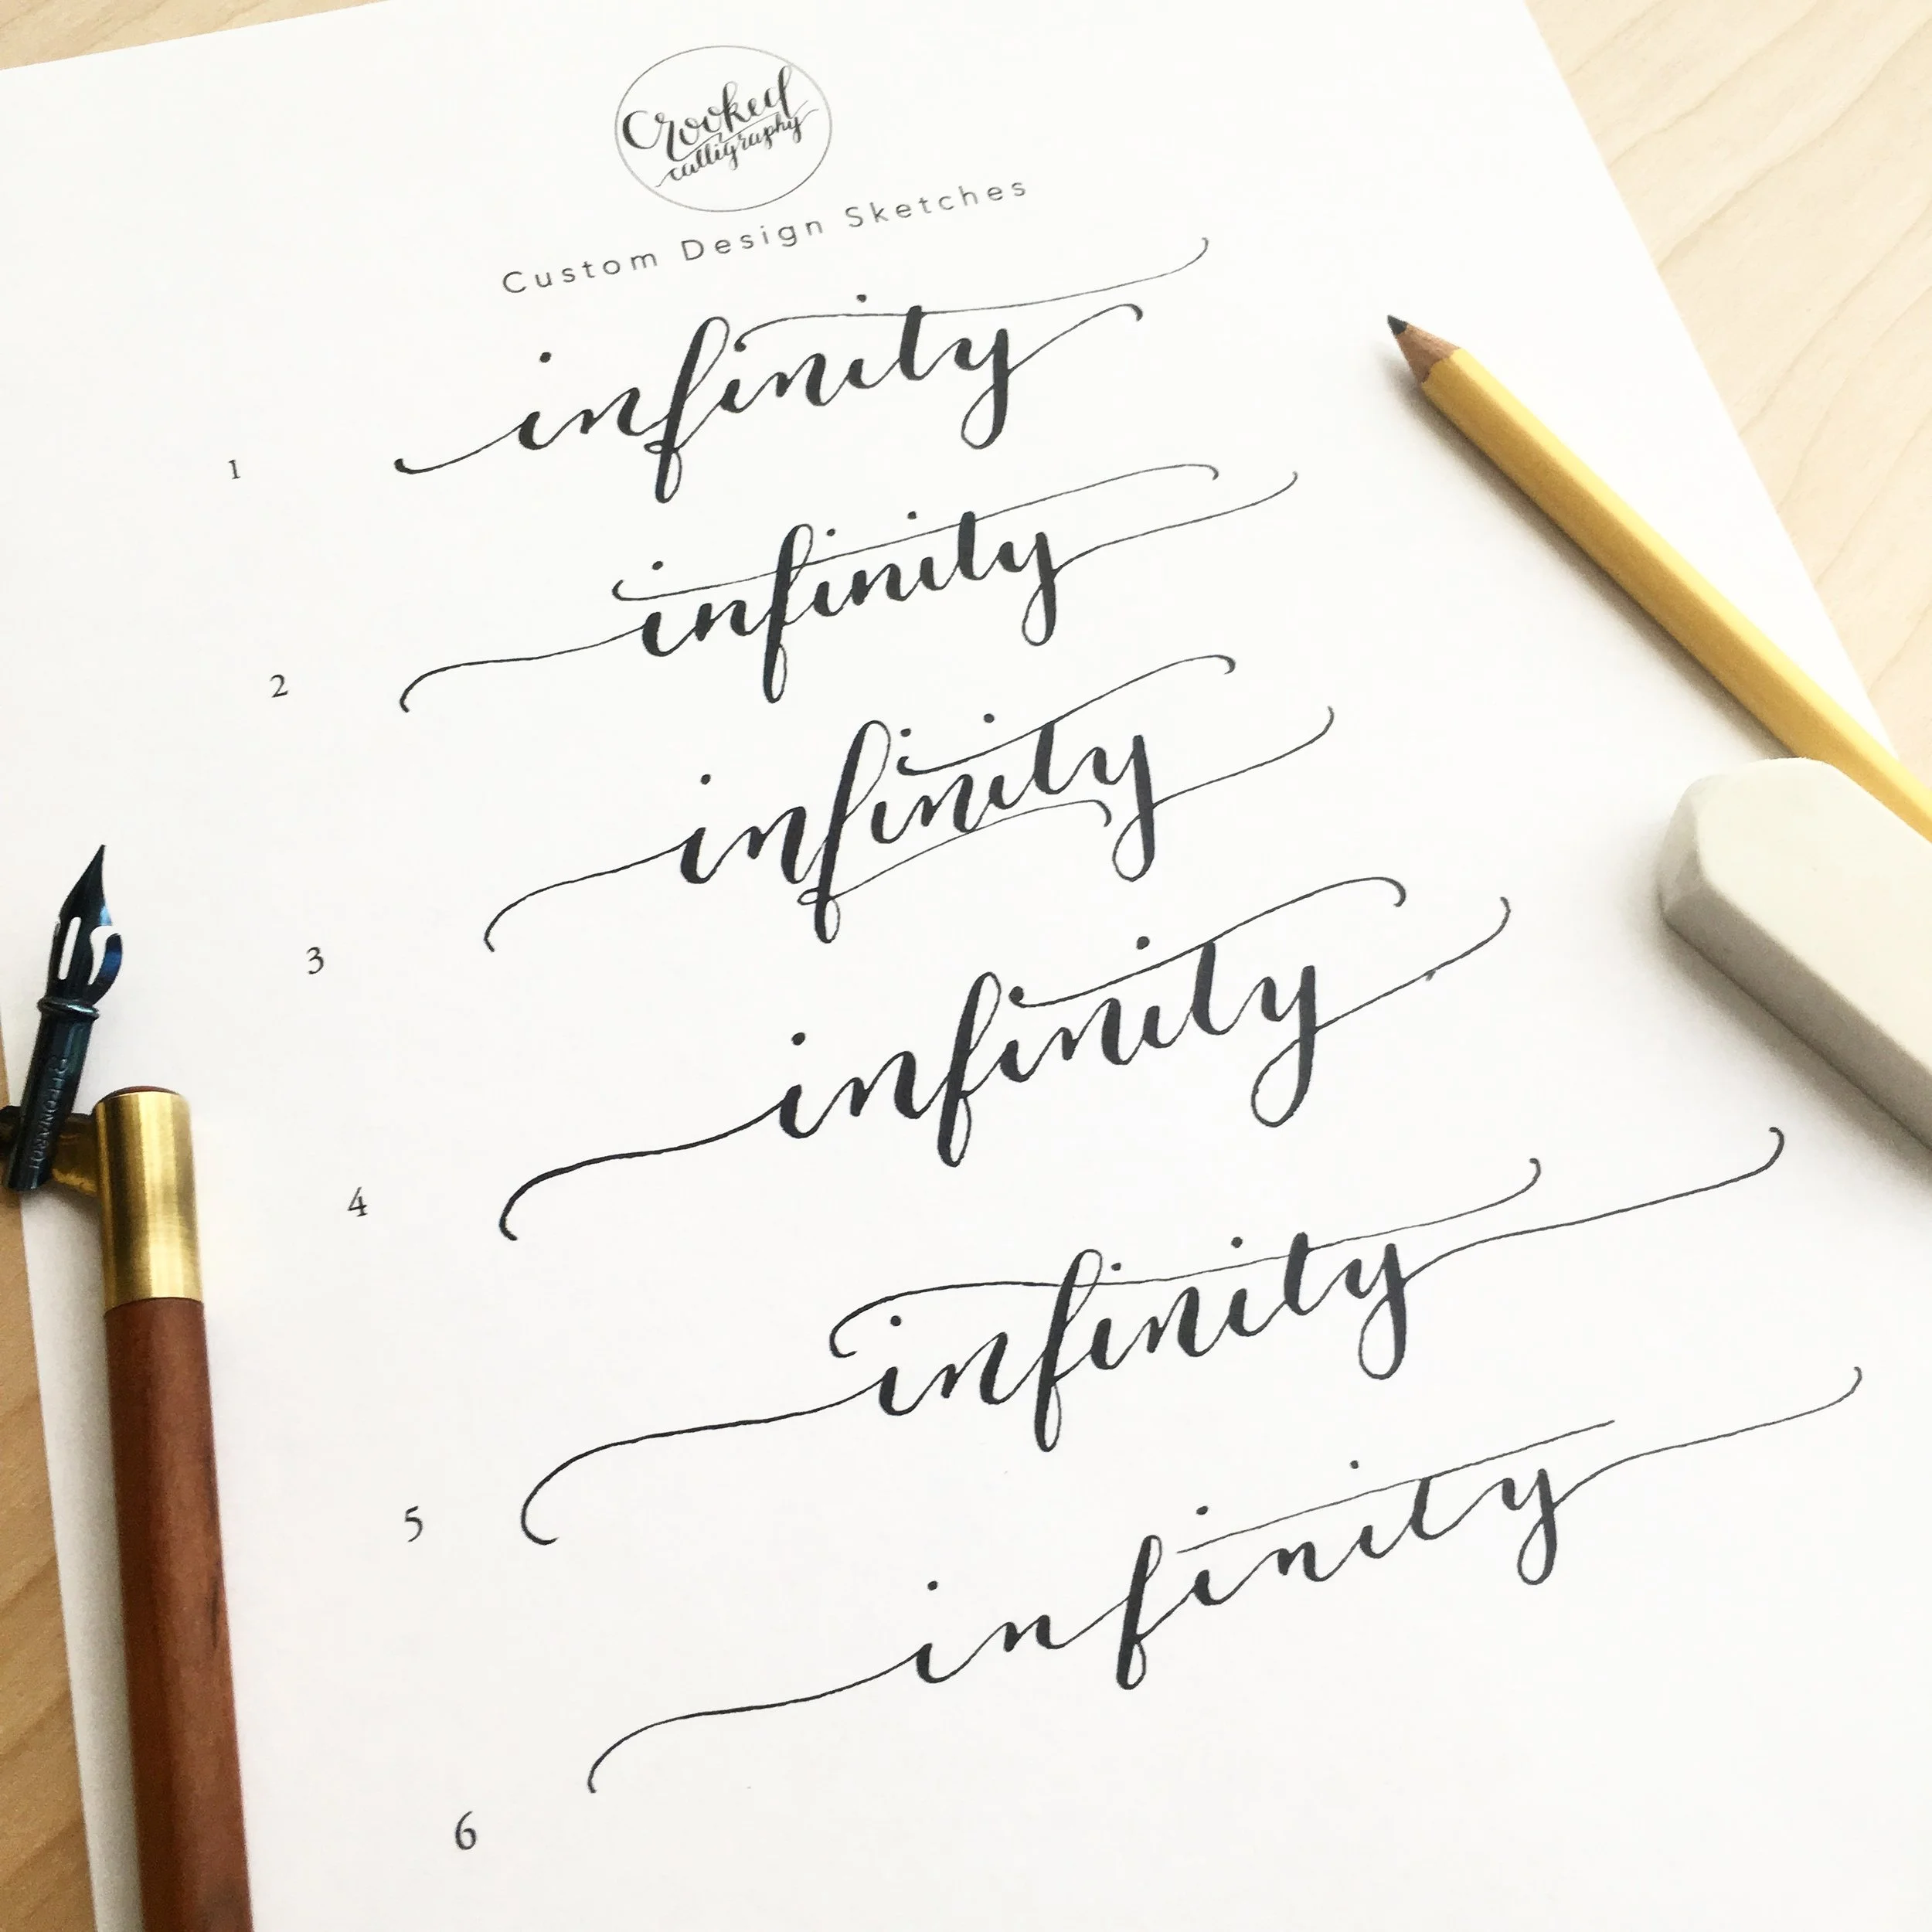 Crooked
calligraphy
Custom Design Sketches
1 infinity
2 infinity
3 infinity
4 infinity
5 infinity
6 infinity
LEONARDT